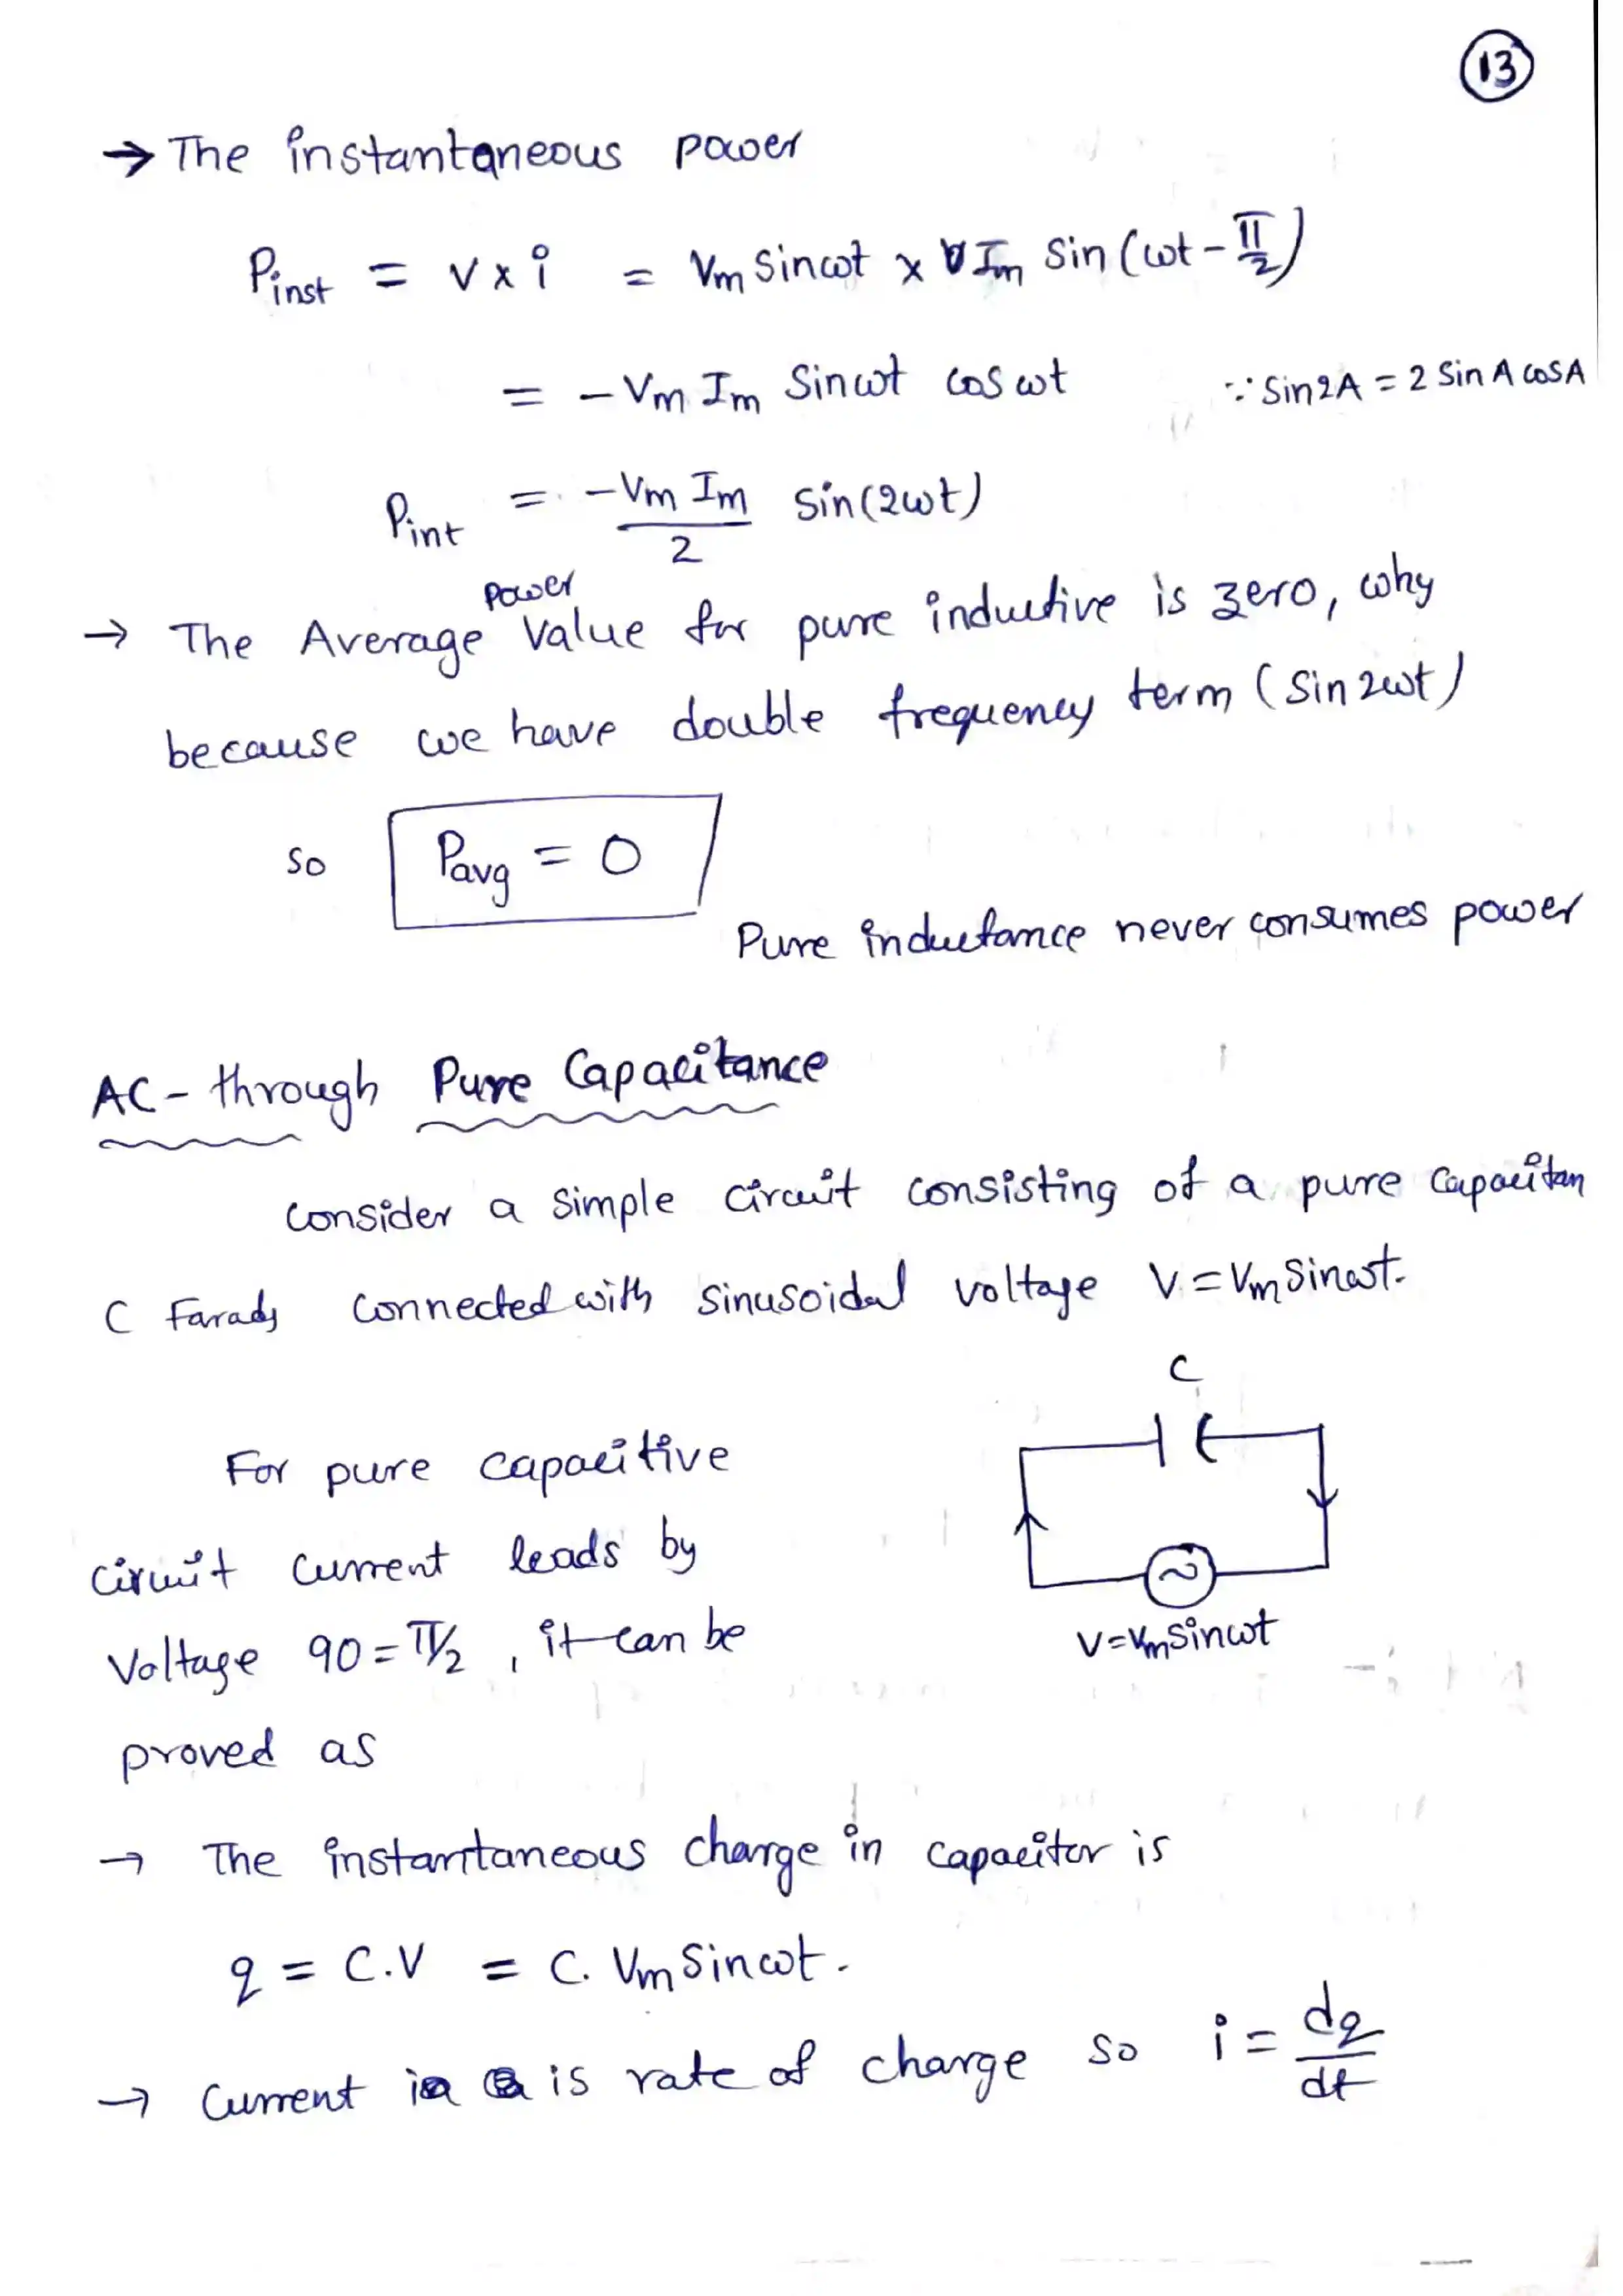 13
→ The instantaneous power
Pinst = V x i = Vm Sinωt x Im Sin (ωt - π/2)
= - Vm Im Sinωt cos ωt ∵ Sin2A = 2 Sin A cosA
Pint = -Vm Im / 2 Sin(2ωt)
→ The Average power Value for pure inductive is zero, why
because we have double frequency term (Sin 2ωt)
so Pavg = 0
Pure inductance never consumes power
AC - through Pure Capacitance
Consider a simple circuit consisting of a pure Capacitan
C Farads Connected with sinusoidal voltage V = Vm Sinωt.
C
For pure capacitive
circuit current leads by
Voltage 90 = π/2 , it can be
V=Vmsinωt
proved as
→ The instantaneous charge in capacitor is
q = C.V = C. Vm Sinωt.
→ Current is rate of charge so i = dq/dt